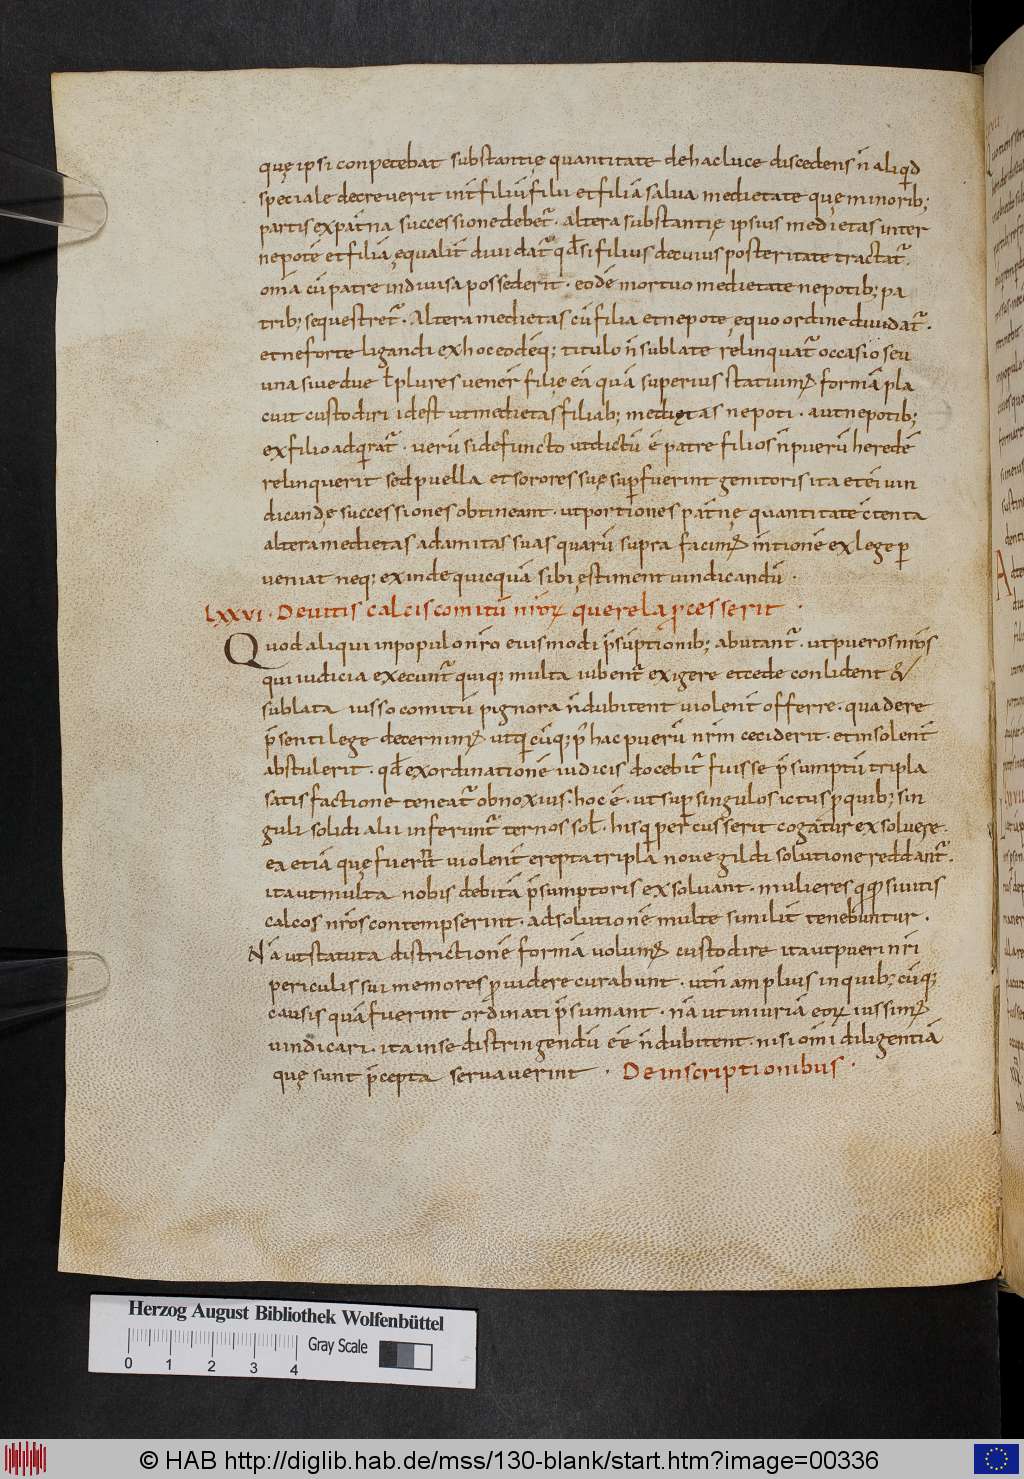 quę ipsi conpetebat substantię quantitate dehac luce discedens n̄ aliqid
speciale decreverit int̄ filiū filii et filiā salva medietate quę minorib;
partis ex pat̄na successione debet᷑ . altera substantię ipsius medietas inter
nepotē et filiā ęqualit̄ dividat᷑ qđ si filius decuius posteritate tractat᷑ .
om̄ia cū patre indivisa possederit . eodē mortuo medietate nepotib; pa
trib; sequestret᷑ . Altera medietas cū filia et nepote ęquo ordine dividat᷑ .
et ne forte ligandi ex hoc eodēq; titulo n̄ sublate relinquat᷑ occasio seu
una sive due ł plures vener̄ filię eā quā superius statuim᷒ formā pla
cuit custodiri idest ut medietas filiab; medięetas nepoti . aut nepotib;
ex filio adqirat᷑ . verū si defuncto ut dictū ē patre filios n̄ puerū heredē
relinquerit sed puella et sorores suę sup̱fuerint genitoris ita et ei vin
dicandę successiones obtineant . ut portiones pat̄nę quantitate c̄tenta
altera medietas ad amitas suas quarū supra facim᷒ m̄tionē ex lege ꝑ
veniat neq; exinde quicquā sibi ęstiment vindicandū .
LXXVI . De vitis calcis comitū nr̄oꝝ querela ꝓcesserit .
Quod aliqui in populo nr̄o eiusmodi p̄sūptionib; abutant᷑ . ut pueros nr̄os
qui iudicia execunt᷑ quiq; multa iubent᷑ exigere et cede conlident &
sublata iusso comitū pignora n̄ dubitent violent̄ offerre . qua de re
p̄senti lege decernim᷒ ut qicūq; p᷑ hac puerū nr̄m ceciderit . et insolent̄
abstulerit . qđ ex ordinatione iudicis docebit᷑ fuisse p̄sumptū tripla
satisfactione teneat᷑ obnoxius . hoc ē . ut sup̱ singulos ictus ꝓ quib; sin
guli solidi alii inferunt᷑ ternos sol̄ . his qi percusserit cogatur exsolvere .
ea etiā quę fuer̄nt violent̄ erepta tripla novegildi solutione reddant᷑ .
ita ut multa nobis debitā p̄sumptoris exsolvant . mulieres qoqe si vitis
calcos nr̄os contempserint . ad solutionē multe similit̄ tenebuntur .
Nā ut statuta districtionē formā volum᷒ custodire ita ut pueri nr̄i
periculis sui memores ꝓvidere curabunt . ut n̄ amplius in quib; cūq;
causis quā fuerint ordinati p̄sumant . nā ut iniuriā eoꝝ iussim᷒
vindicari . ita in se distringendū ēē n̄ dubitent . nisi om̄i diligentiā
quę sunt p̄cepta servaverint . De inscriptionibus .
Herzog August Bibliothek Wolfenbüttel
Gray Scale
0 1 2 3 4
© HAB http://diglib.hab.de/mss/130-blank/start.htm?image=00336